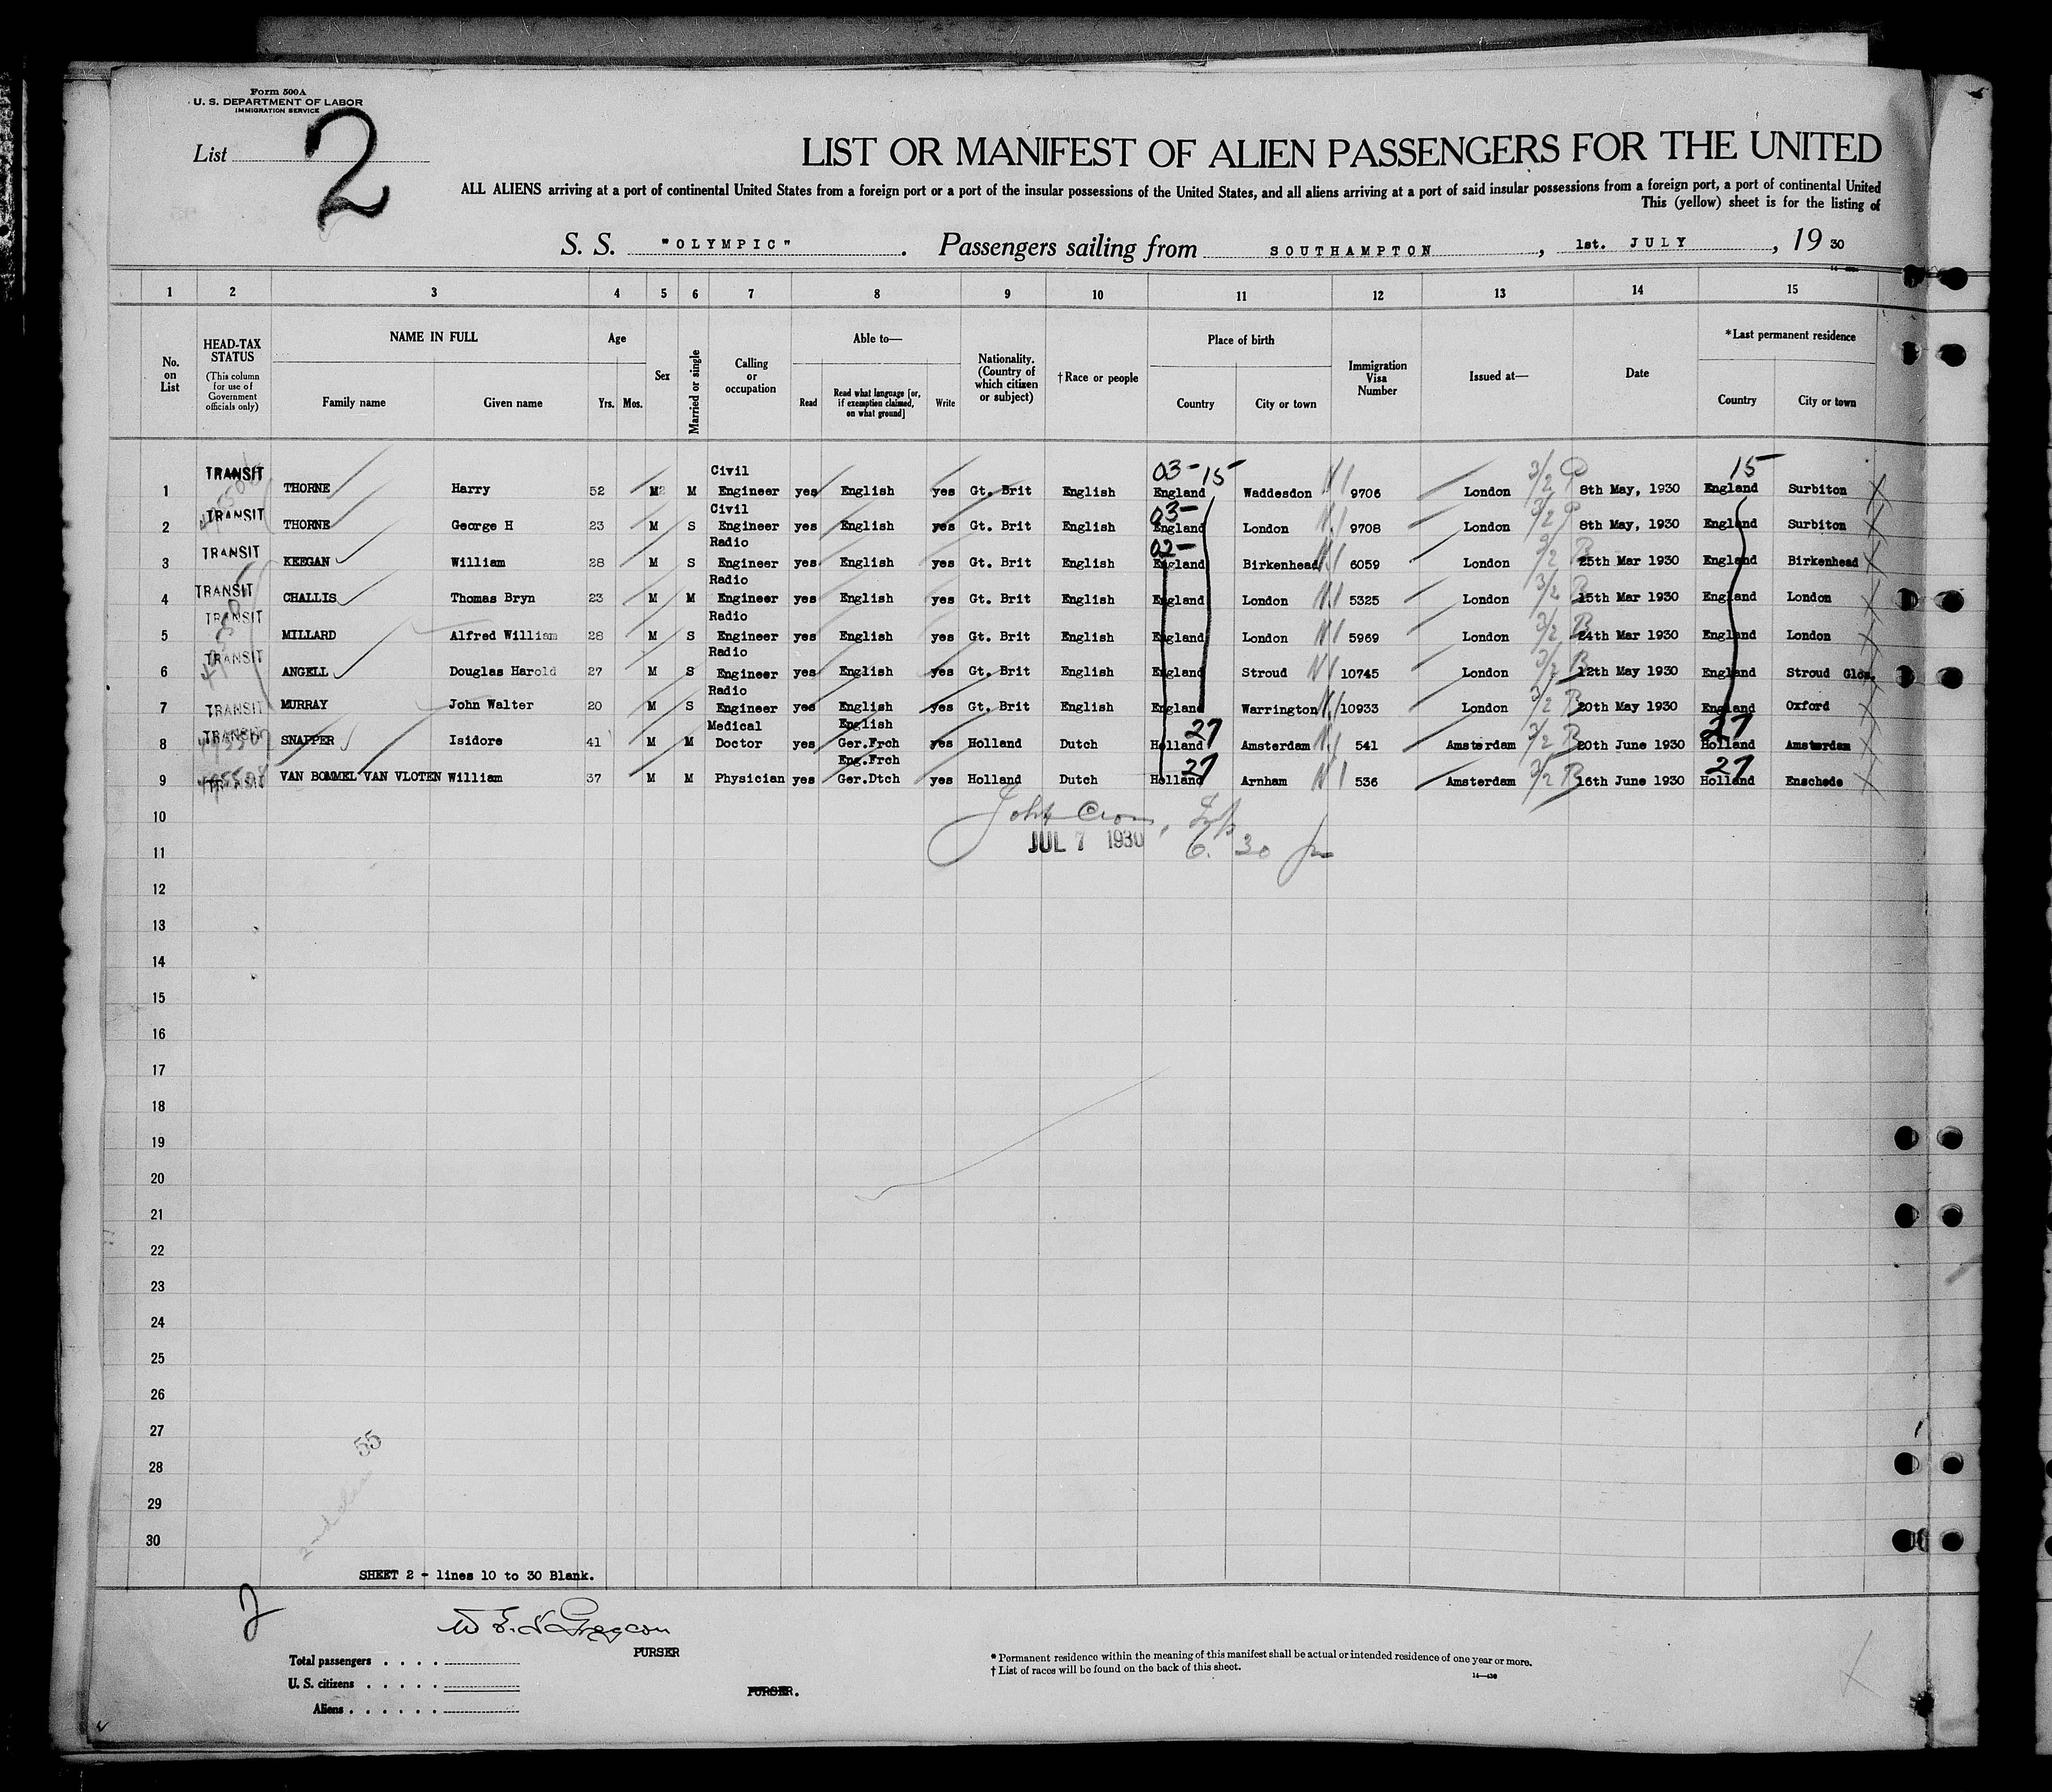 Form 500A
U. S. DEPARTMENT OF LABOR
IMMIGRATION SERVICE
List 2
LIST OR MANIFEST OF ALIEN PASSENGERS FOR THE UNITED
ALL ALIENS arriving at a port of continental United States from a foreign port or a port of the insular possessions of the United States, and all aliens arriving at a port of said insular possessions from a foreign port, a port of continental United
This (yellow) sheet is for the listing of
S. S. "OLYMPIC". Passengers sailing from SOUTHAMPTON, 1st. JULY, 19 30
1 2 3 4 5 6 7 8 9 10 11 12 13 14 15
No. on List
HEAD-TAX STATUS
(This column for use of Government officials only)
NAME IN FULL
Family name Given name
Age
Yrs. Mos.
Sex
Married or single
Calling or occupation
Able to—
Read
Read what language [or, if exemption claimed, on what ground]
Write
Nationality. (Country of which citizen or subject)
†Race or people
Place of birth
Country City or town
Immigration Visa Number
Issued at—
Date
*Last permanent residence
Country City or town
TRANSIT Civil 03-15 15
1 THORNE Harry 52 M M Engineer yes English yes Gt. Brit English England Waddesdon 9706 London 8th May, 1930 England Surbiton
TRANSIT Civil 03-
2 THORNE George H 23 M S Engineer yes English yes Gt. Brit English England London 9708 London 8th May, 1930 England Surbiton
TRANSIT Radio 02-
3 KEEGAN William 28 M S Engineer yes English yes Gt. Brit English England Birkenhead 6059 London 25th Mar 1930 England Birkenhead
TRANSIT Radio
4 CHALLIS Thomas Bryn 23 M M Engineer yes English yes Gt. Brit English England London 5325 London 15th Mar 1930 England London
TRANSIT Radio
5 MILLARD Alfred William 28 M S Engineer yes English yes Gt. Brit English England London 5969 London 24th Mar 1930 England London
TRANSIT Radio
6 ANGELL Douglas Harold 27 M S Engineer yes English yes Gt. Brit English England Stroud 10745 London 12th May 1930 England Stroud Glos.
TRANSIT Radio
7 MURRAY John Walter 20 M S Engineer yes English yes Gt. Brit English England Warrington 10933 London 20th May 1930 England Oxford
TRANSIT Medical English 27 27
8 SNAPPER Isidore 41 M M Doctor yes Ger.Frch yes Holland Dutch Holland Amsterdam 541 Amsterdam 20th June 1930 Holland Amsterdam
Eng.Frch 27 27
9 TRANSIT VAN BOMMEL VAN VLOTEN William 37 M M Physician yes Ger.Dtch yes Holland Dutch Holland Arnham 536 Amsterdam 16th June 1930 Holland Enschede
10
JUL 7 1930
11
12
13
14
15
16
17
18
19
20
21
22
23
24
25
26
27
55
28
29
30
SHEET 2 - lines 10 to 30 Blank.
2
PURSER
Total passengers
U. S. citizens
Aliens
PURSER.
* Permanent residence within the meaning of this manifest shall be actual or intended residence of one year or more.
† List of races will be found on the back of this sheet.